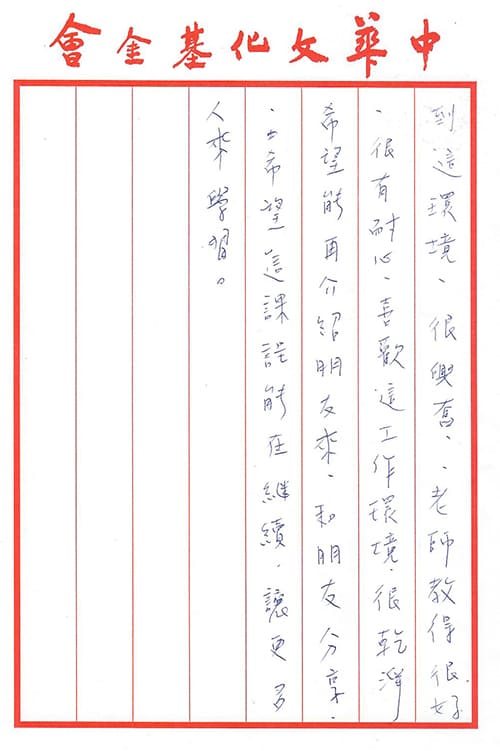 中華文化基金會
到這環境、很興奮、、老師教得很好
、很有耐心、喜歡這工作環境、很乾淨
希望能再介紹朋友來、和朋友分享、
、也希望這課程能在繼續、讓更多
人來學習。